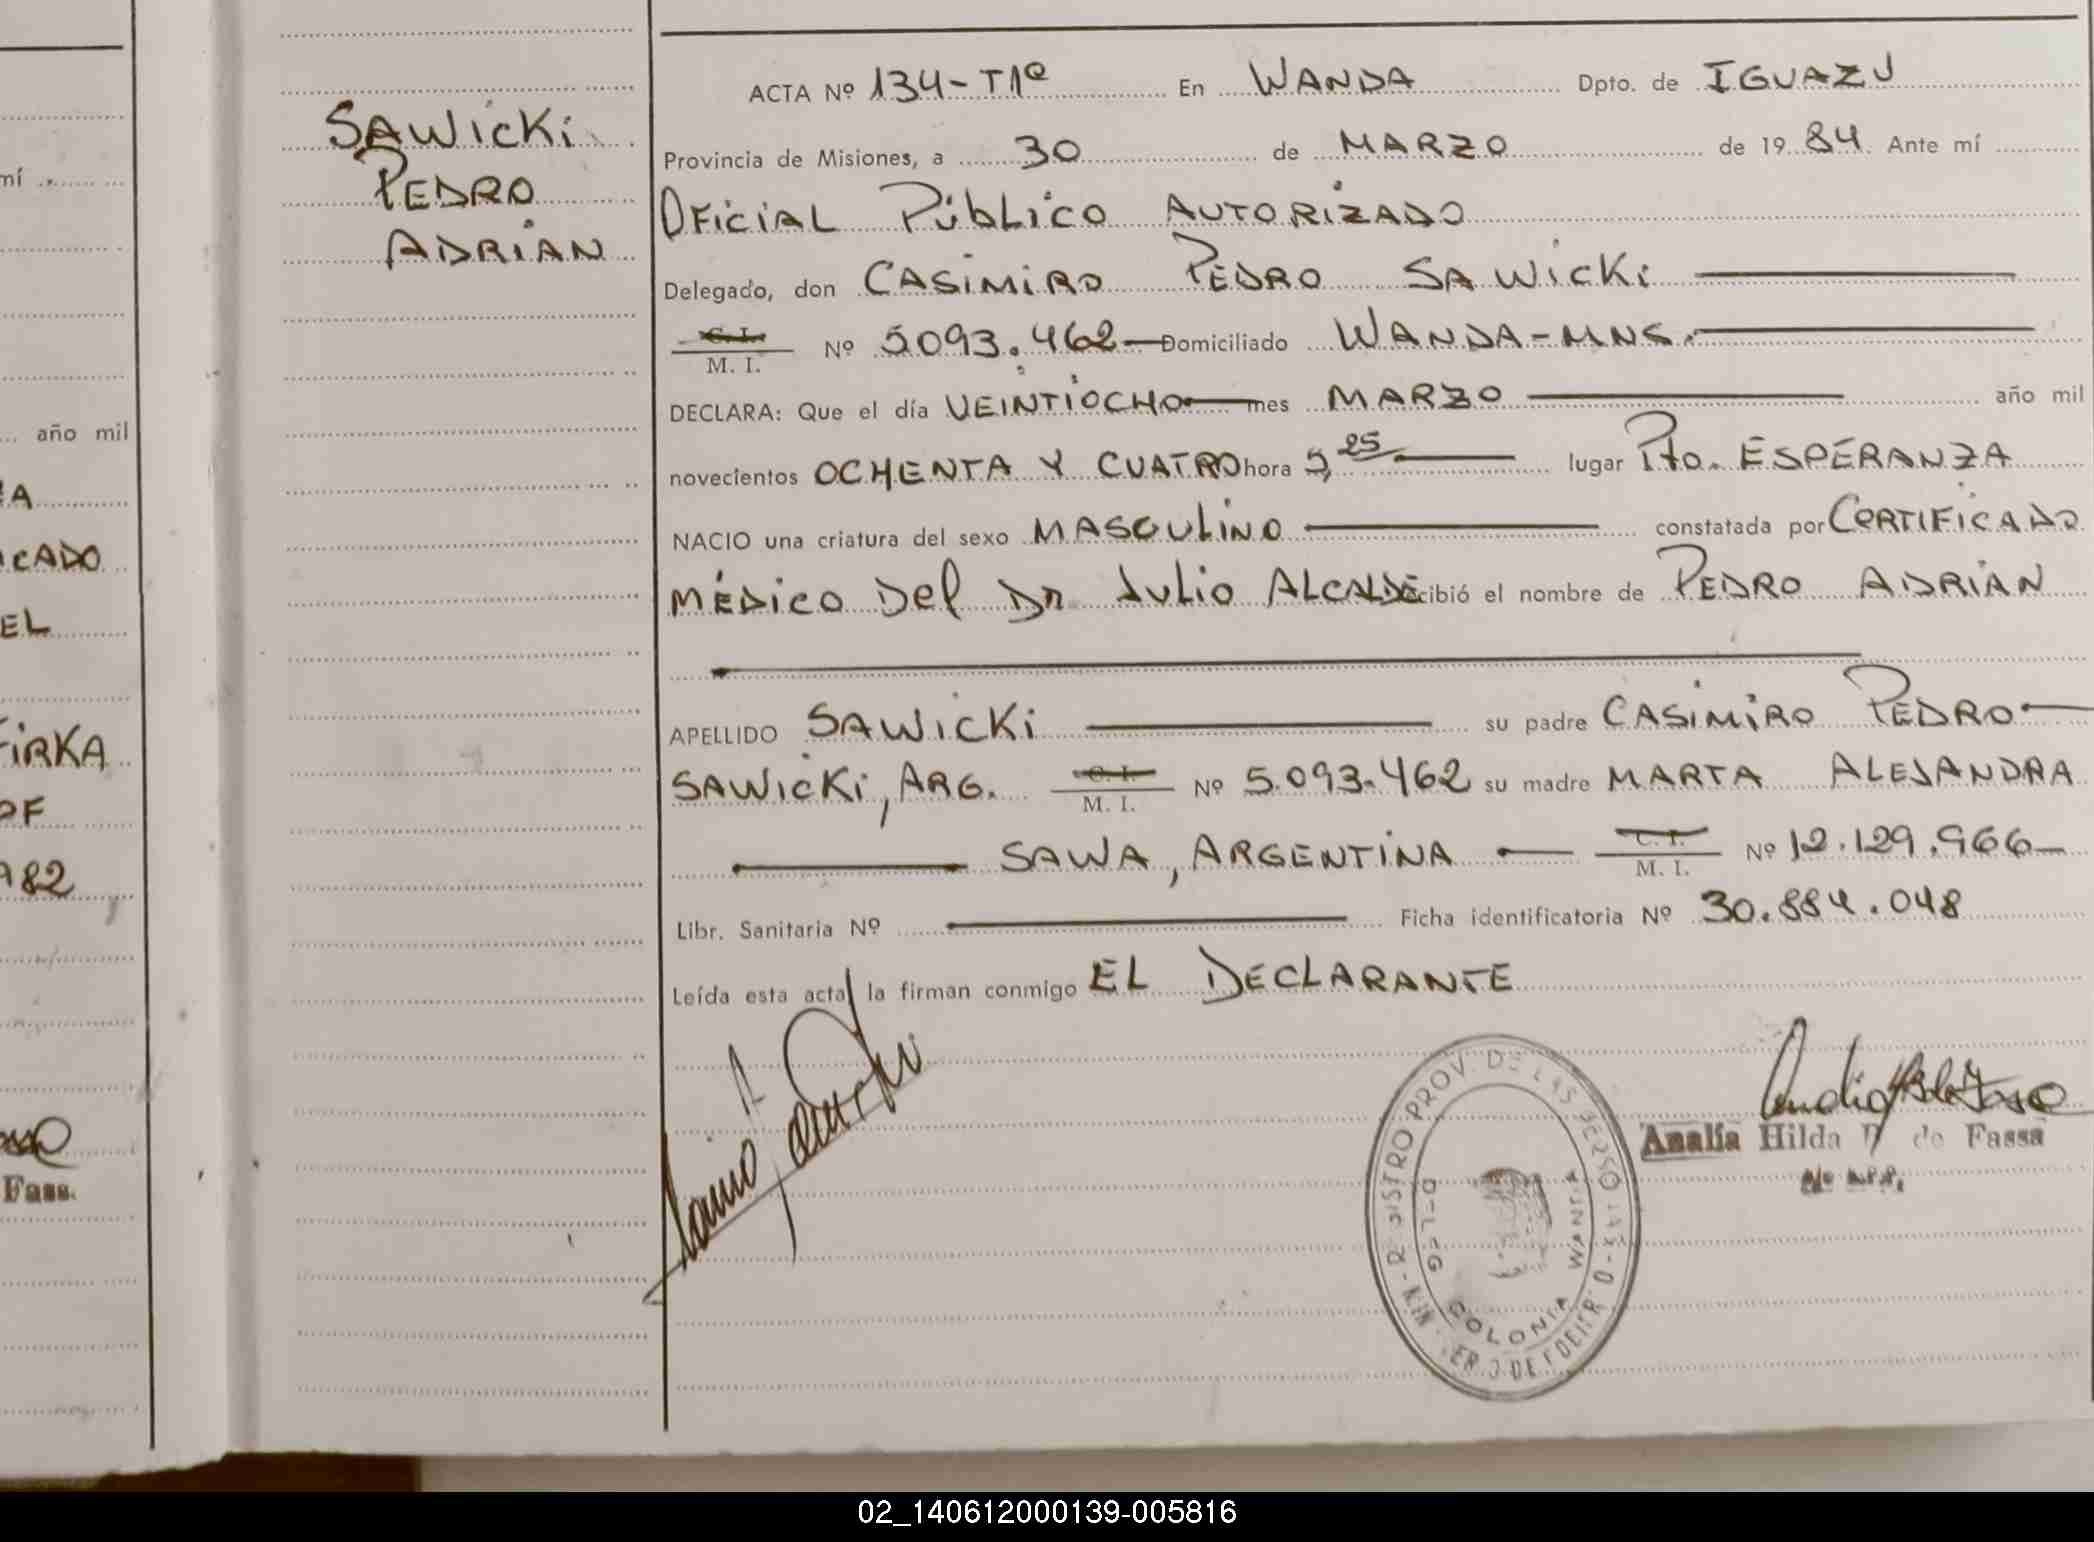 SAWICKI
PEDRO
ADRIÁN
ACTA Nº 134-T1º En WANDA Dpto. de IGUAZU
Provincia de Misiones, a 30 de MARZO de 1984. Ante mí
OFICIAL PÚBLICO AUTORIZADO
Delegado, don CASIMIRO PEDRO SAWICKI
C. I.
M. I. Nº 5.093.462 Domiciliado WANDA-MNS.
DECLARA: Que el día VEINTIOCHO mes MARZO año mil
novecientos OCHENTA Y CUATRO hora 5,25 lugar Pto. ESPERANZA
NACIO una criatura del sexo MASCULINO constatada por CERTIFICADO
MÉDICO DEL DR JULIO ALCALDE recibió el nombre de PEDRO ADRIÁN
APELLIDO SAWICKI su padre CASIMIRO PEDRO
SAWICKI, ARG. C. I. M. I. Nº 5.093.462 su madre MARTA ALEJANDRA
SAWA, ARGENTINA C. I. M. I. Nº 12.129.966
Libr. Sanitaria Nº Ficha identificatoria Nº 30.884.048
Leída esta acta la firman conmigo EL DECLARANTE
Analía Hilda de Fassa
DELEG
COLONIA
WANDA
mí
año mil
EA
ICADO
EL
FIRKA
OF
982
Fass.
02_140612000139-005816